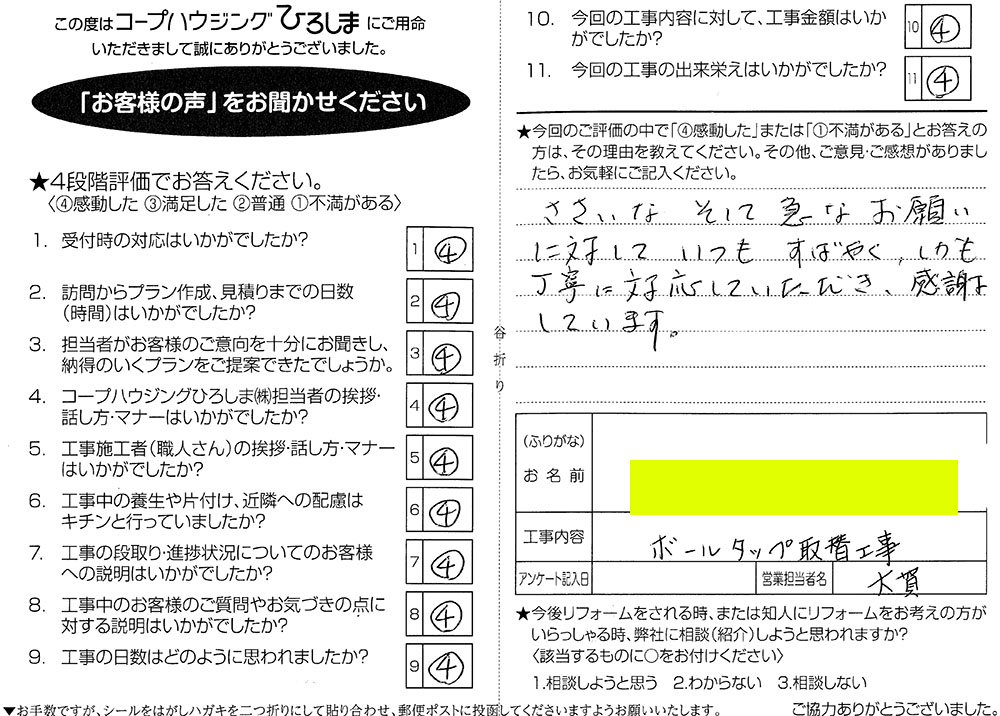 この度はコープハウジングひろしまにご用命
いただきまして誠にありがとうございました。
「お客様の声」をお聞かせください
★4段階評価でお答えください。
〈④感動した ③満足した ②普通 ①不満がある〉
1. 受付時の対応はいかがでしたか？
1 ④
2. 訪問からプラン作成、見積りまでの日数
（時間）はいかがでしたか？
2 ④
3. 担当者がお客様のご意向を十分にお聞きし、
納得のいくプランをご提案できたでしょうか。
3 ④
4. コープハウジングひろしま㈱担当者の挨拶・
話し方・マナーはいかがでしたか？
4 ④
5. 工事施工者（職人さん）の挨拶・話し方・マナー
はいかがでしたか？
5 ④
6. 工事中の養生や片付け、近隣への配慮は
キチンと行っていましたか？
6 ④
7. 工事の段取り・進捗状況についてのお客様
への説明はいかがでしたか？
7 ④
8. 工事中のお客様のご質問やお気づきの点に
対する説明はいかがでしたか？
8 ④
9. 工事の日数はどのように思われましたか？
9 ④
▼お手数ですが、シールをはがしハガキを二つ折りにして貼り合わせ、郵便ポストに投函してくださいますようお願いいたします。
谷折り
10. 今回の工事内容に対して、工事金額はいか
がでしたか？
10 ④
11. 今回の工事の出来栄えはいかがでしたか？
11 ④
★今回のご評価の中で「④感動した」または「①不満がある」とお答えの
方は、その理由を教えてください。その他、ご意見・ご感想がありまし
たら、お気軽にご記入ください。
ささいな そして 急な お願い
に対して いつも すばやく、しかも
丁寧に対応していただき、感謝
しています。
（ふりがな）
お名前
工事内容 ボールタップ取替工事
アンケート記入日 営業担当者名 大賀
★今後リフォームをされる時、または知人にリフォームをお考えの方が
いらっしゃる時、弊社に相談（紹介）しようと思われますか？
〈該当するものに○をお付けください〉
1.相談しようと思う 2.わからない 3.相談しない
ご協力ありがとうございました。